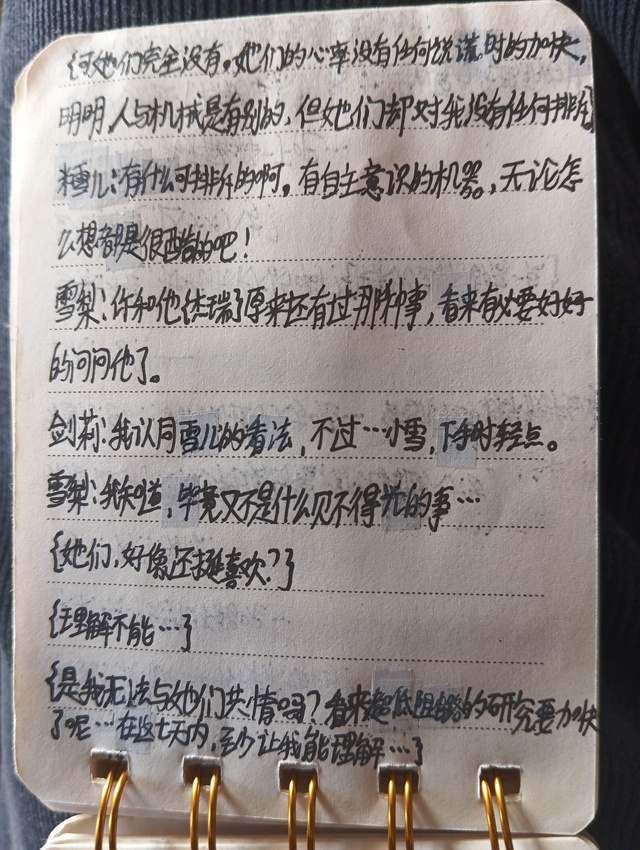 {可她们完全没有。她们的心率没有任何说谎时的加快，
明明，人与机械是有别的，但她们却对我没有任何排斥}
糖儿：有什么可排斥的啊。有自主意识的机器。，无论怎
么想都是很酷的吧！
雪梨：你和他 瑞了原来还有过那种事，看来有必要好好
的问问他了。
剑莉：我认同雪儿的看法，不过…小雪，下手时轻点。
雪梨：我知道，毕竟又不是什么见不得光的事…
{她们，好像还挺喜欢？}
{理解不能…}
{是我无法与她们共情吗？看来超低阻 的研究要加快
了呢…在这七天内，至少让我能理解…}